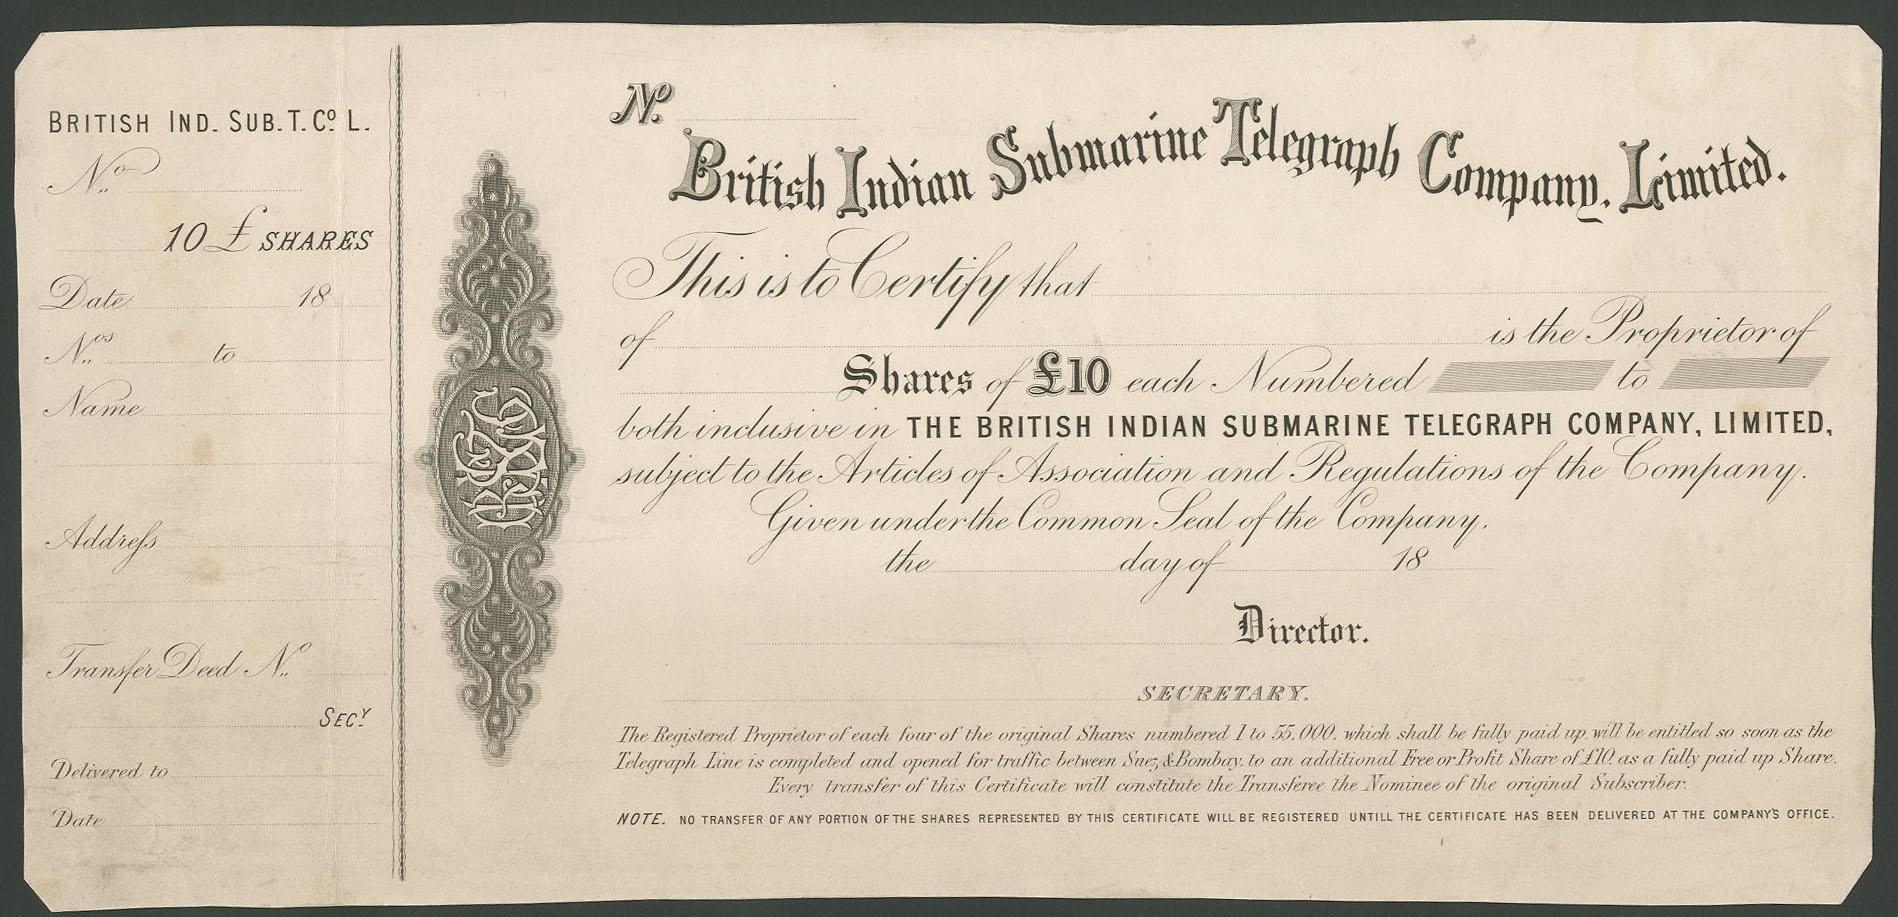 BRITISH IND. SUB. T. Cº L.
Nº
10 £ SHARES
Date 18
Nºˢ to
Name
Addreſs
Transfer Deed Nº
SECʸ
Delivered to
Date
Nº
British Indian Submarine Telegraph Company, Limited.
This is to Certify that
of is the Proprietor of
Shares of £10 each Numbered to
both inclusive in THE BRITISH INDIAN SUBMARINE TELEGRAPH COMPANY, LIMITED,
subject to the Articles of Association and Regulations of the Company.
Given under the Common Seal of the Company.
the day of 18
Director.
SECRETARY.
The Registered Proprietor of each four of the original Shares numbered 1 to 55,000, which shall be fully paid up, will be entitled so soon as the
Telegraph Line is completed and opened for traffic between Suez & Bombay, to an additional Free or Profit Share of £10, as a fully paid up Share.
Every transfer of this Certificate will constitute the Transferee the Nominee of the original Subscriber.
NOTE. NO TRANSFER OF ANY PORTION OF THE SHARES REPRESENTED BY THIS CERTIFICATE WILL BE REGISTERED UNTILL THE CERTIFICATE HAS BEEN DELIVERED AT THE COMPANY'S OFFICE.